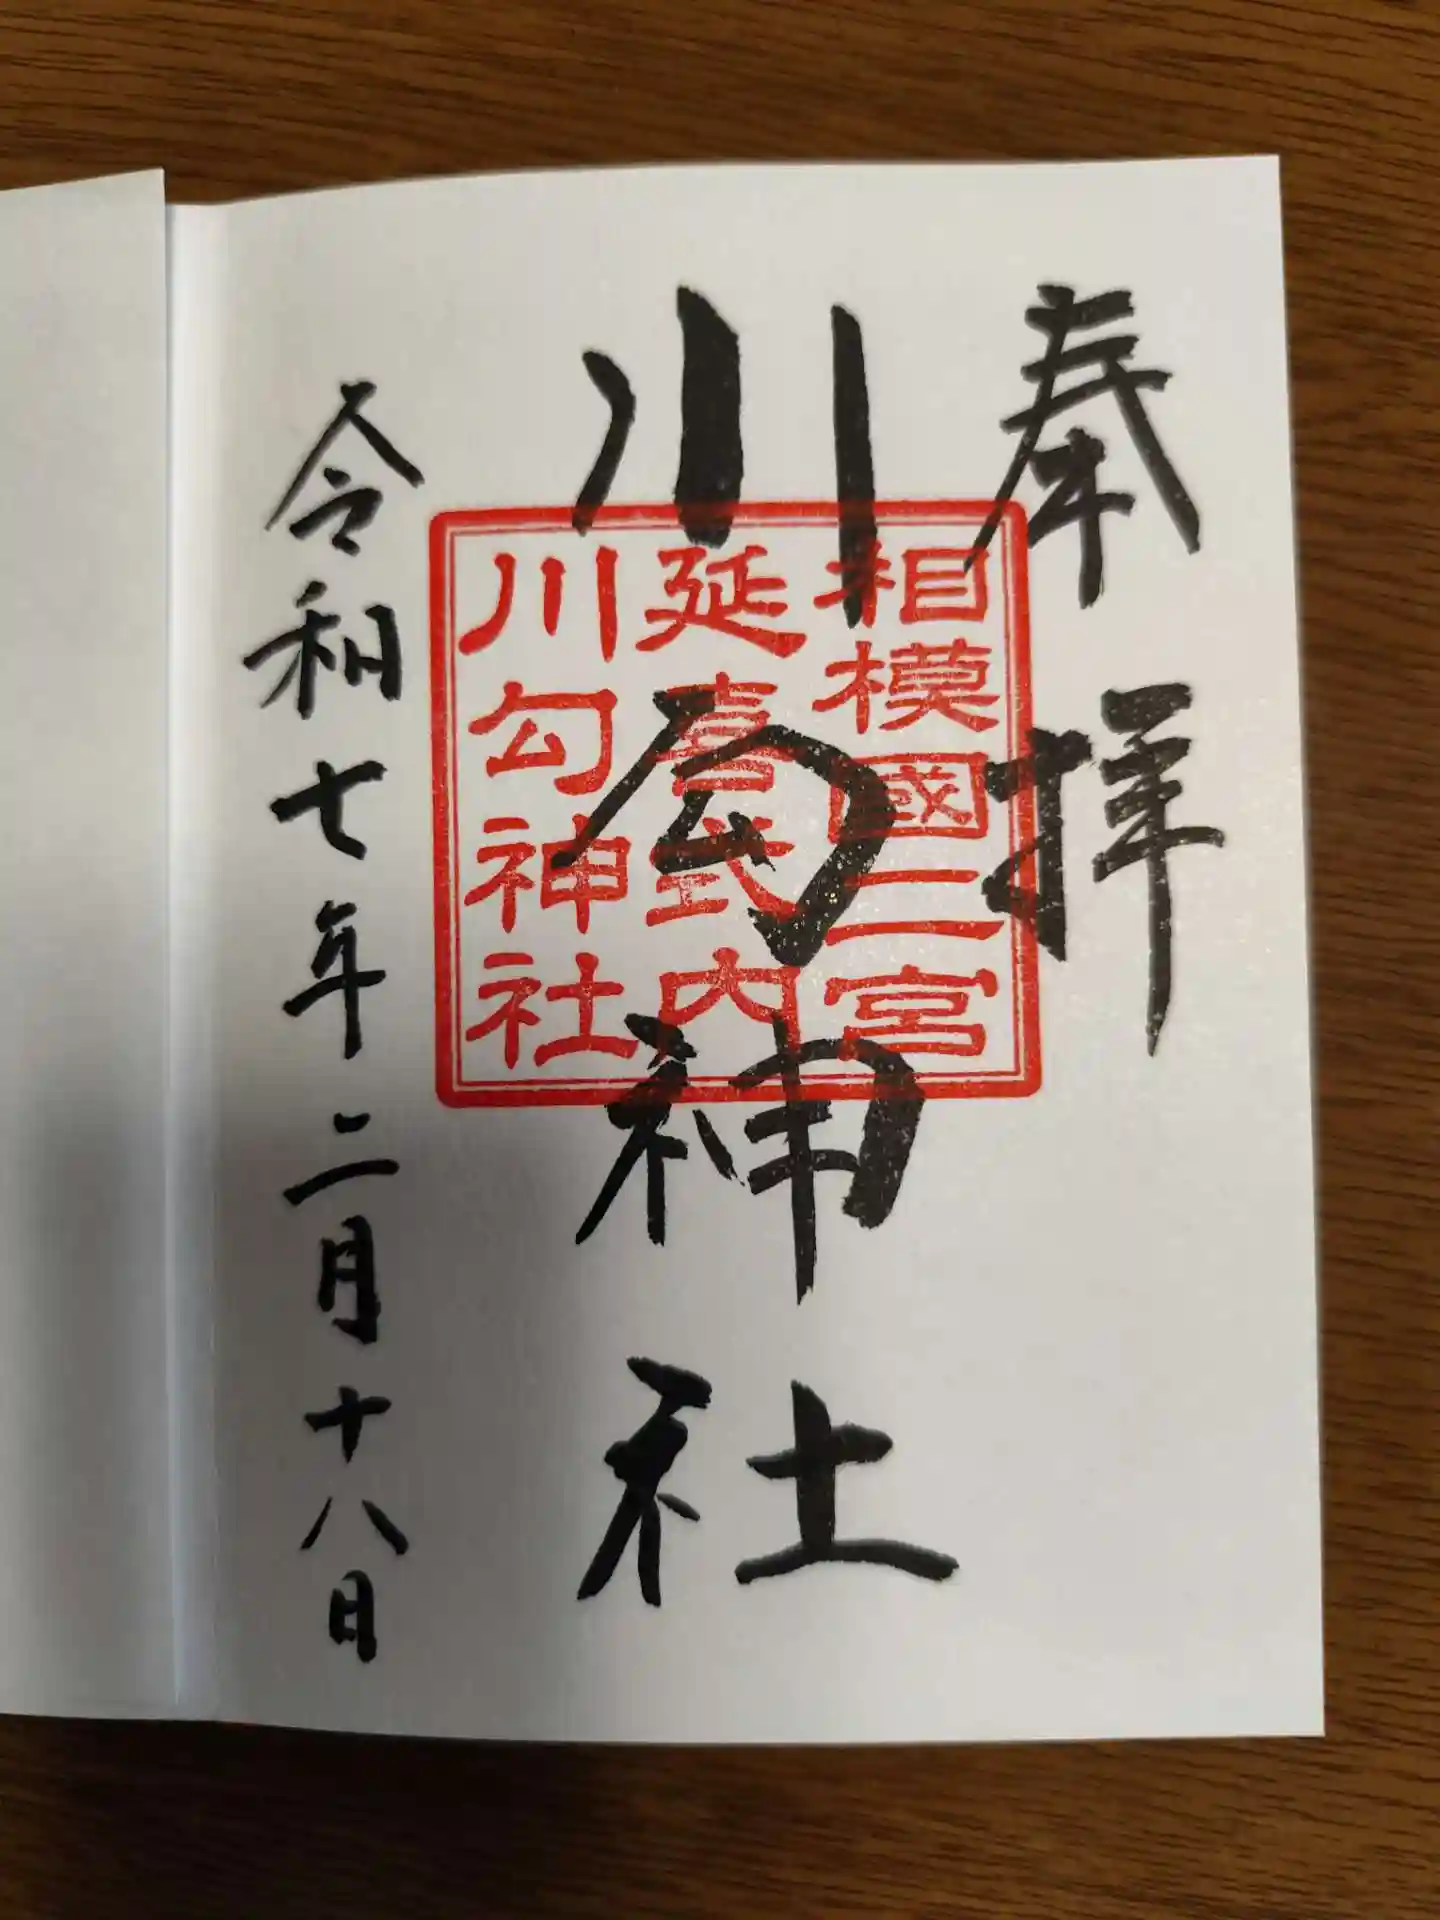 奉拝
川勾神社
相模國二宮
延喜式内
川勾神社
令和七年二月十八日